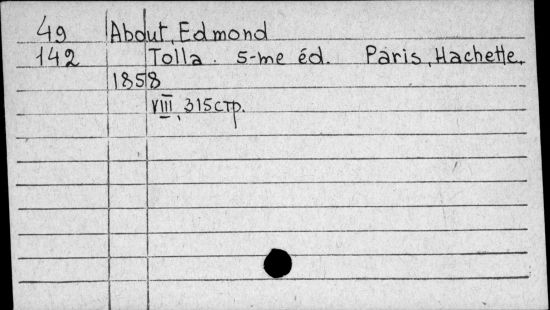 49 About, Edmond
142 Tolla. 5-me éd. Paris, Hachette,
1858
VIII, 315 стр.